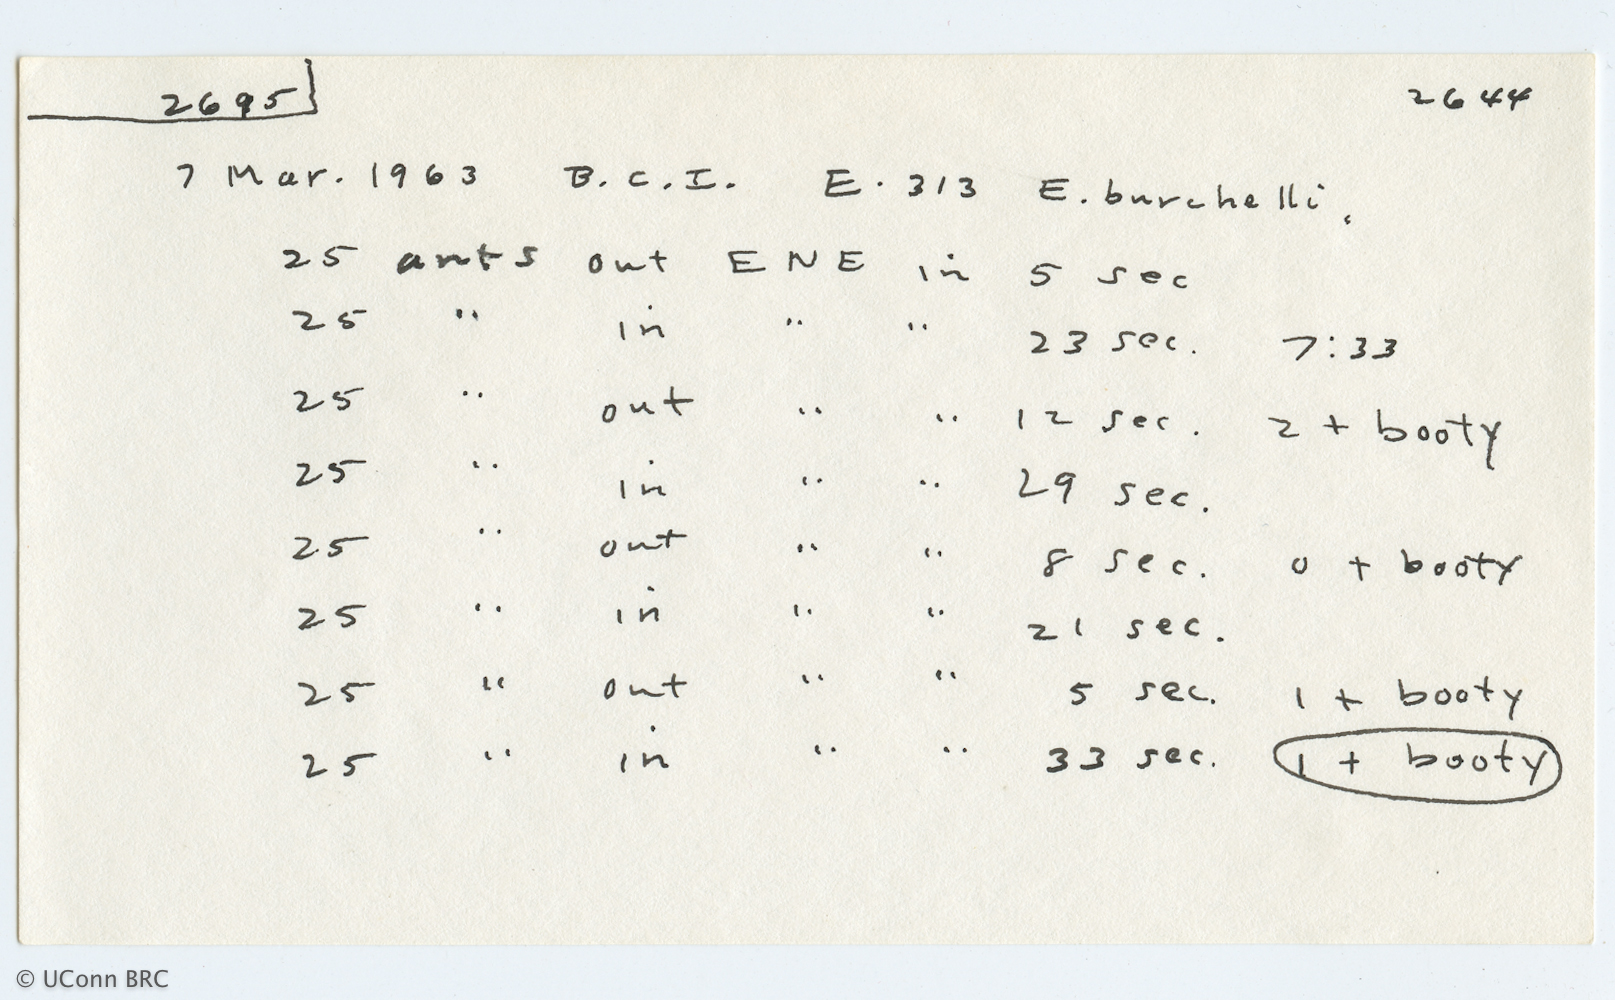 2695
2644
7 Mar. 1963 B.C.I. E. 313 E. burchelli.
25 ants out ENE in 5 sec
25 " in " " 23 sec. 7:33
25 " out " " 12 sec. 2 + booty
25 " in " " 29 sec.
25 " out " " 8 sec. 0 + booty
25 " in " " 21 sec.
25 " out " " 5 sec. 1 + booty
25 " in " " 33 sec. 1 + booty
© UConn BRC